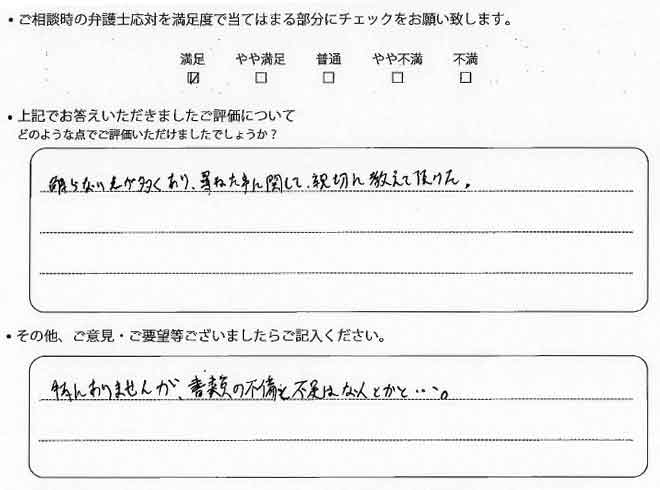 ・ご相談時の弁護士応対を満足度で当てはまる部分にチェックをお願い致します。
満足 やや満足 普通 やや不満 不満
☑ □ □ □ □
・上記でお答えいただきましたご評価について
どのような点でご評価いただけましたでしょうか？
解らない点が多くあり、尋ねた事に関して、親切に教えて頂けた。
・その他、ご意見・ご要望等ございましたらご記入ください。
特にありませんが、書類の不備と不足は なんとかと…。